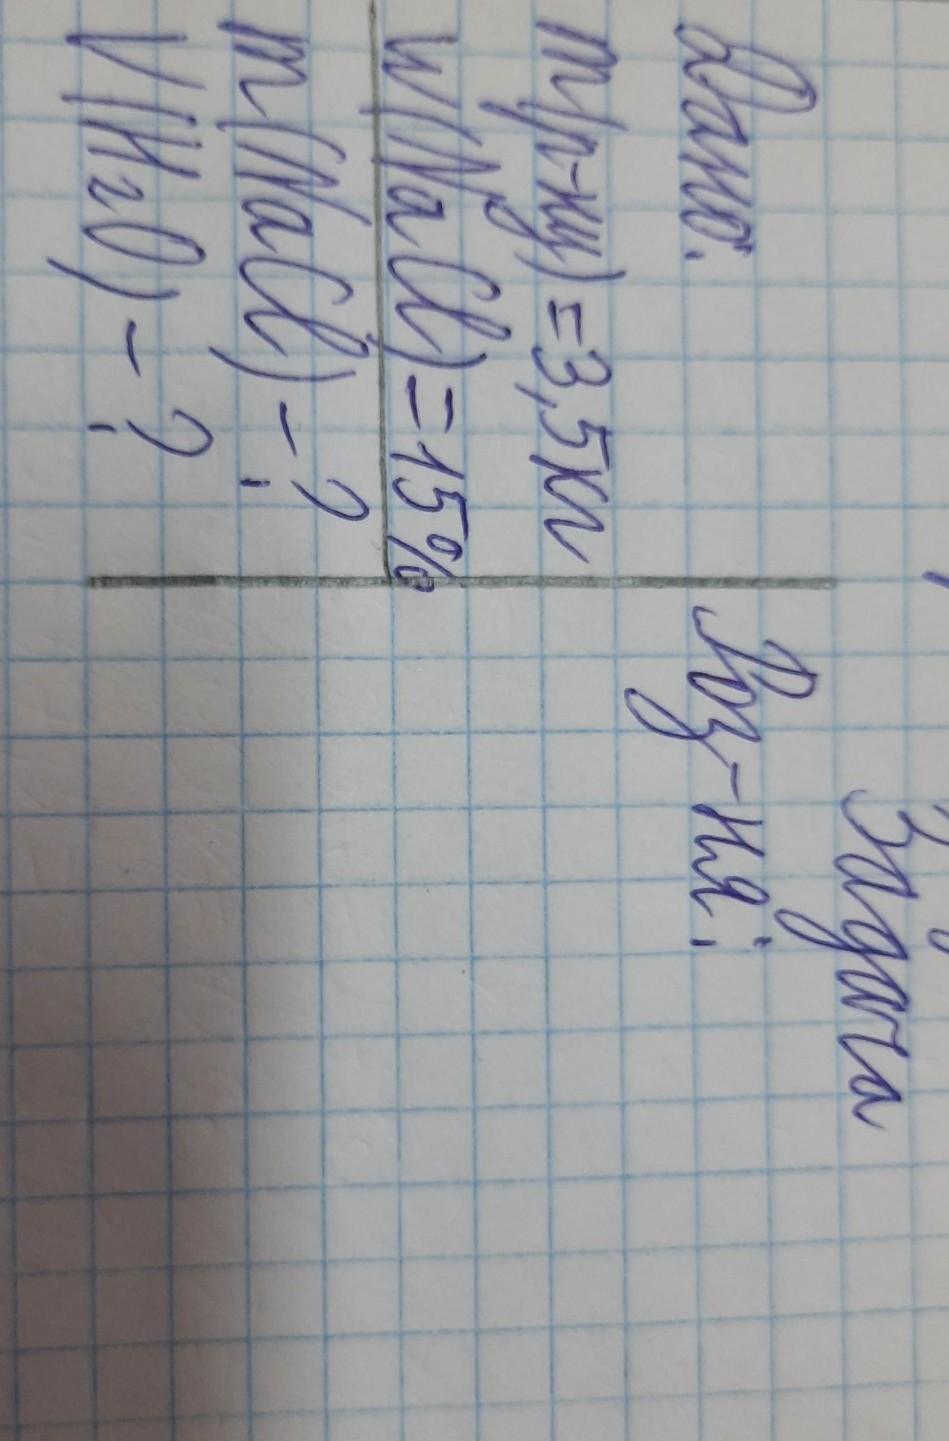 Задача
Дано:
m(р-ну)=3,5кг
w(NaCl)=15%
m(NaCl)-?
V(H₂O)-?
Роз-ня: